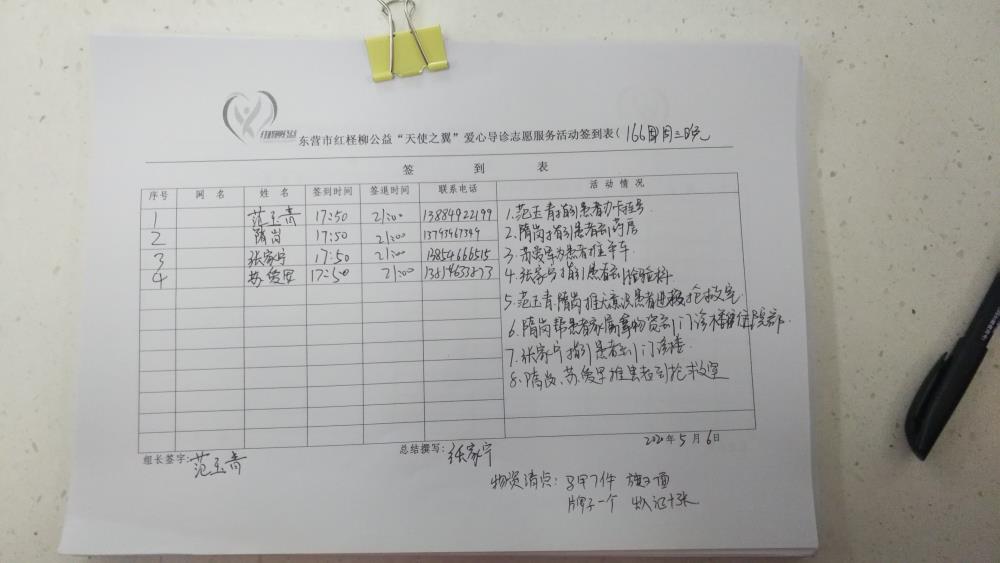 东营市红柽柳公益“天使之翼”爱心导诊志愿服务活动签到表(166周周三晚
签 到 表
序号 网 名 姓 名 签到时间 签退时间 联系电话 活 动 情 况
1 范玉青 17:50 21:00 13884922199
2 隋岗 17:50 21:00
3 张家宁 17:50 21:00 13854666515
4 苏爱军 17:50 21:00
1.范玉青指引患者办卡挂号
2.隋岗指引患者到药房
3.苏爱军为患者推平车
4.张家宁指引患者到检验科
5.范玉青,隋岗推无意识患者进抢救室
6.隋岗帮患者家属拿物资到门诊楼住院部.
7.张家宁指引患者到门诊楼
8.隋岗、苏爱军推患者到抢救室
2020年5月6日
组长签字:范玉青
总结撰写:张家宁
物资清点: 马甲7件 旗2面
牌子一个